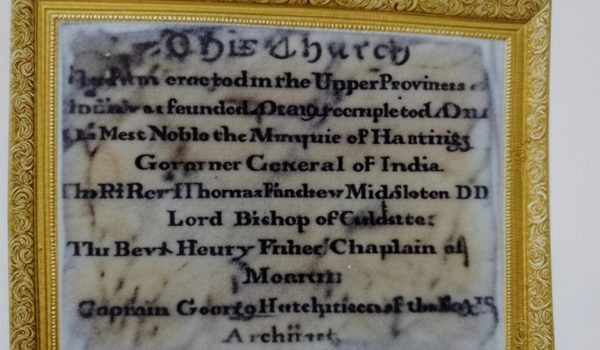 This Church
erected in the Upper Provinces
was founded completed
Most Noble the Marquis of Hastings
Governer General of India
The Rt Rev Thomas Fandsew Middleton DD
Lord Bishop of Calcutta
The Revd Henry Fisher Chaplain of
Meerut
Captain George Hutchinson of the
Architect